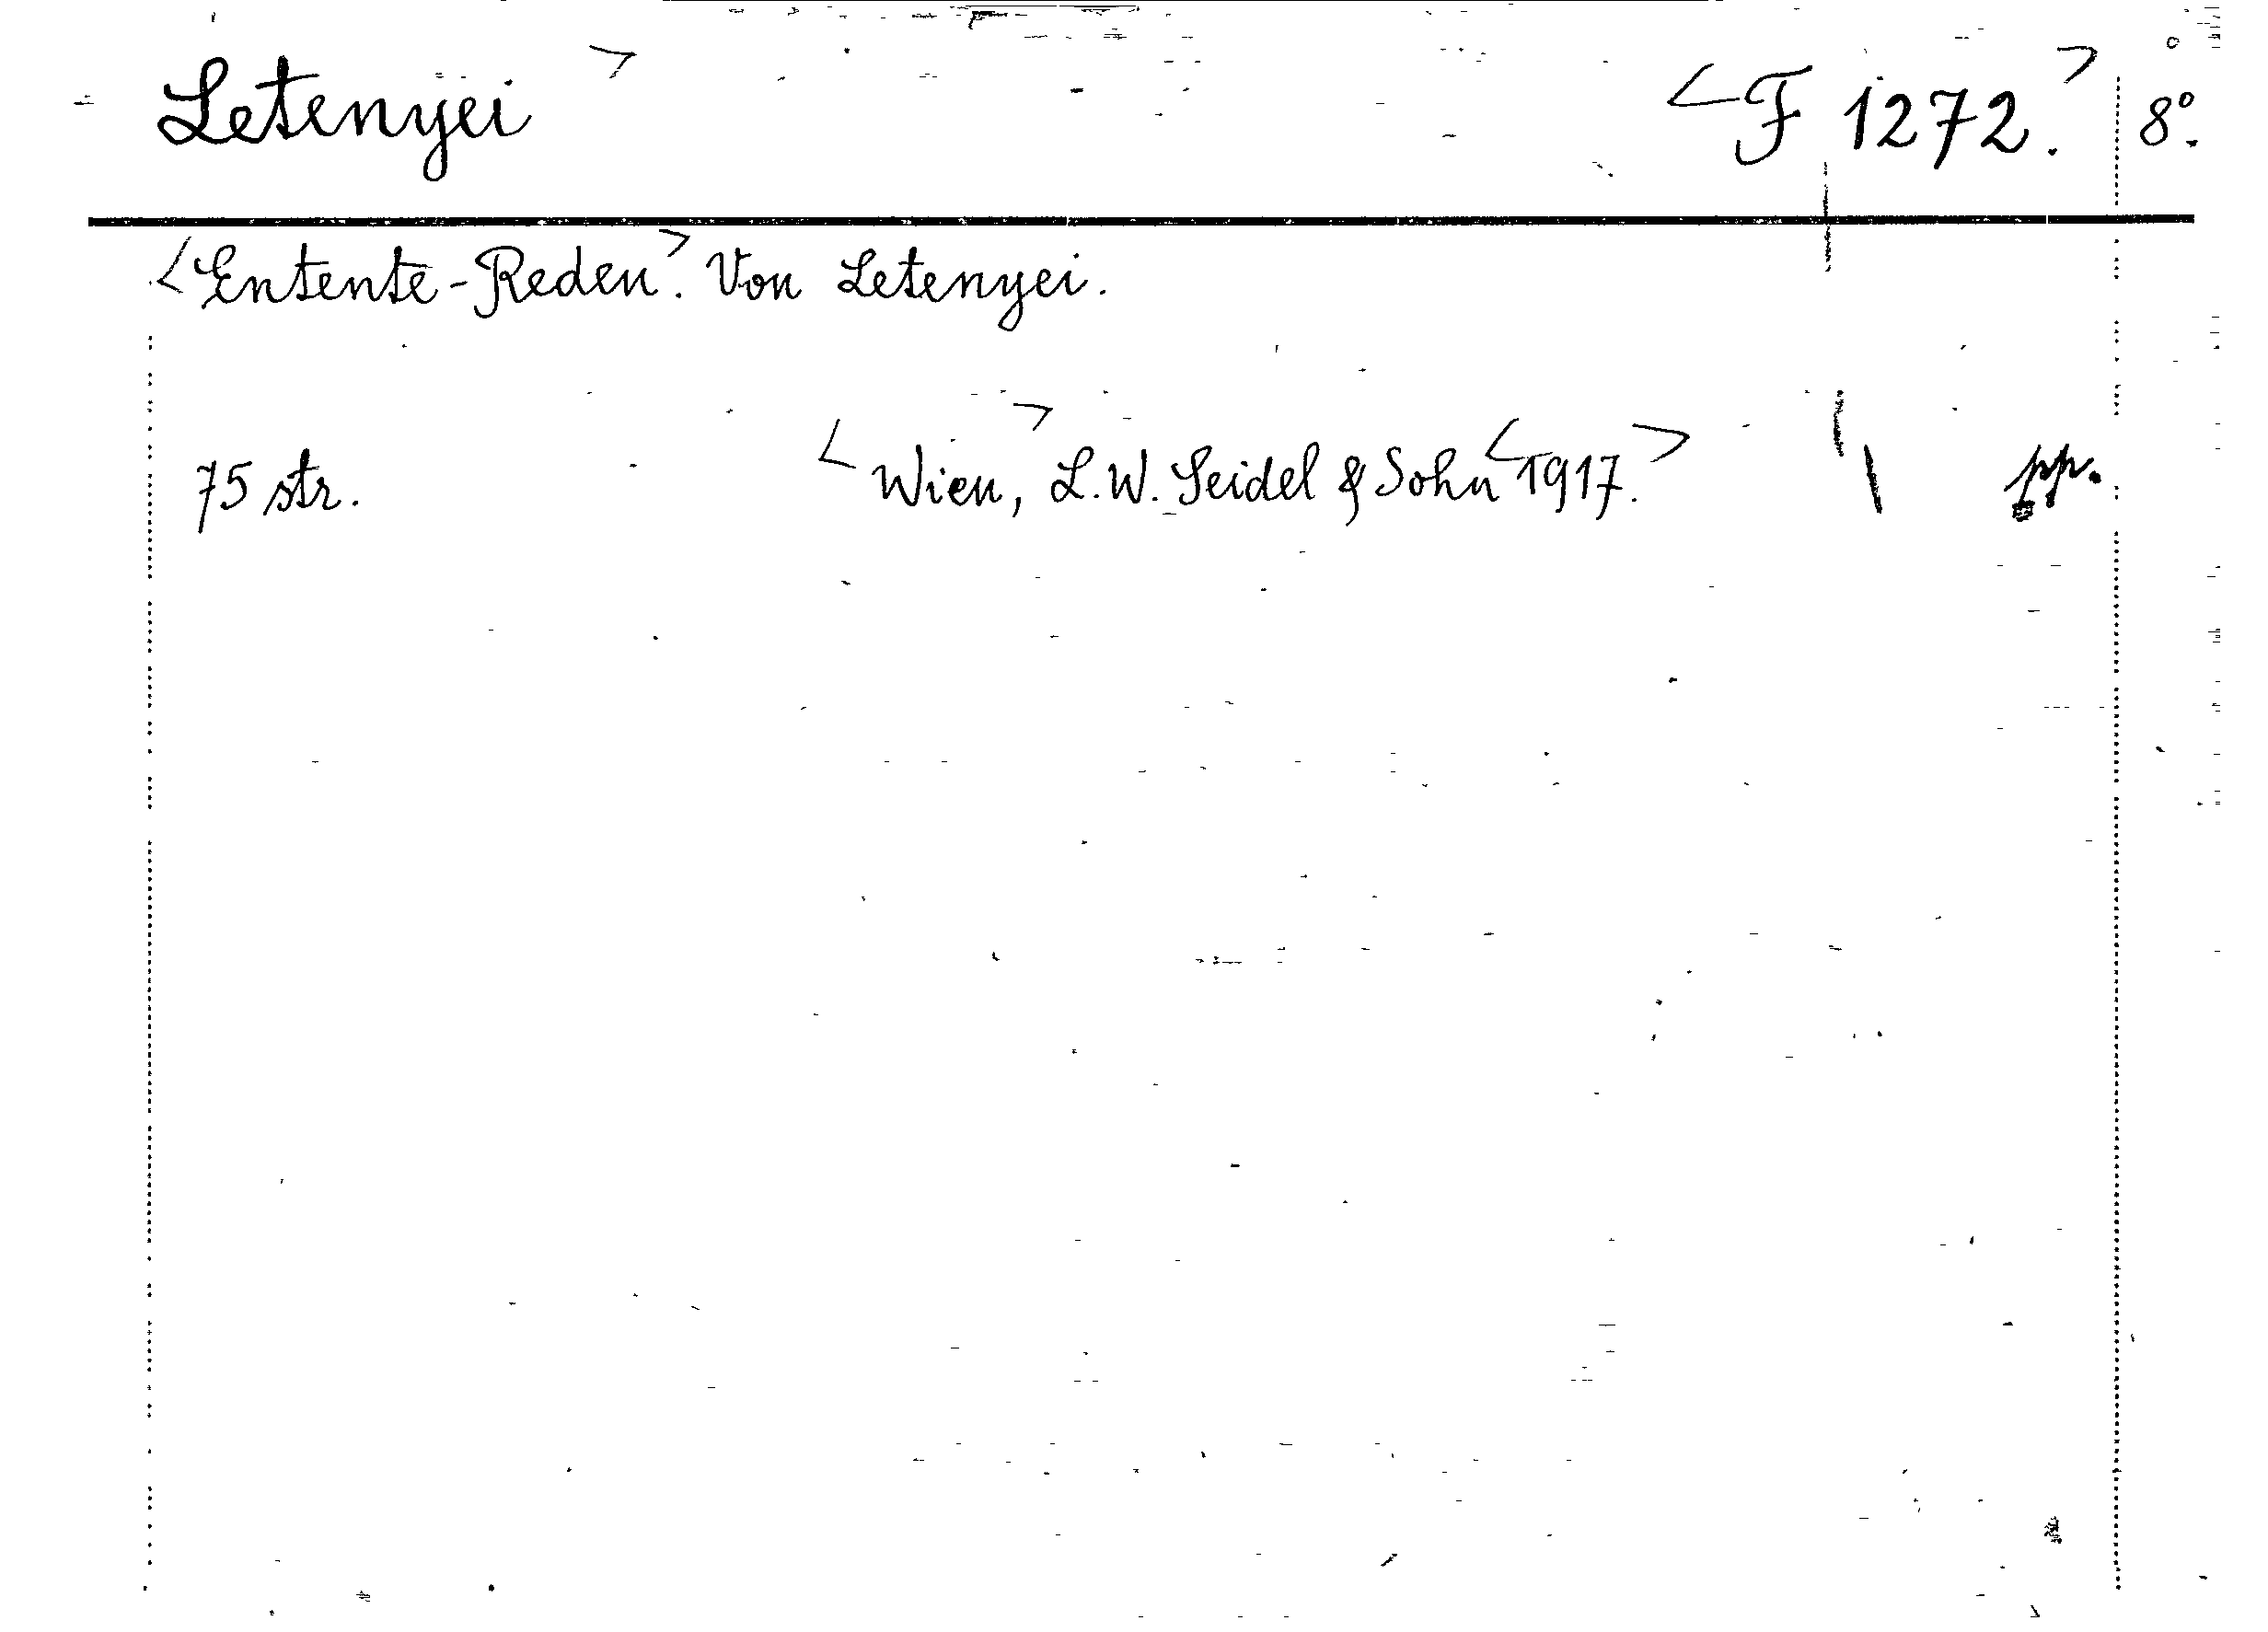 Letenyei > <F 1272.> 8°.
<Entente-Reden>. Von Letenyei.
75 str. <Wien,> L.W. Seidel & Sohn <1917.> pp.